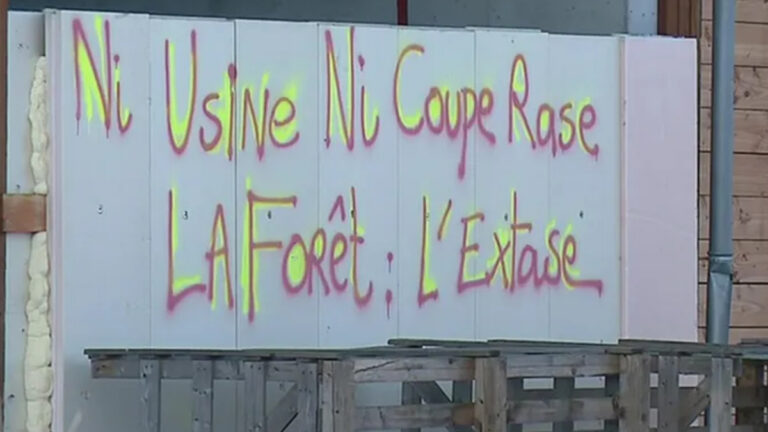 Ni Usine Ni Coupe Rase
La Forêt : L'Extase